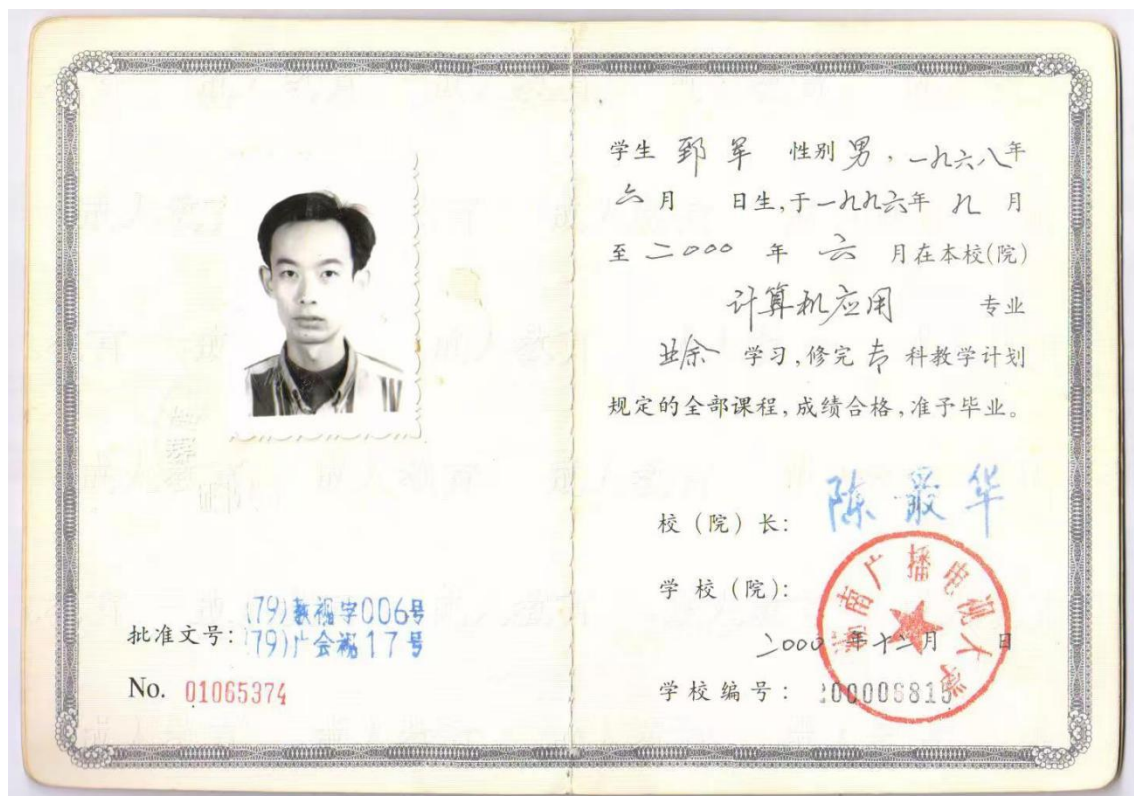 (79)教视字006号
批准文号: (79)广会视17号
No. 01065374
学生 郅军 性别 男, 一九六八年
六月 日生,于一九九六年 九 月
至 二000 年 六 月在本校(院)
计算机应用 专业
业余 学习,修完 专 科教学计划
规定的全部课程,成绩合格,准予毕业。
校(院)长: 陈最华
学校(院):
南广播电视大学
二000 年十二月 日
学校编号: 200006815